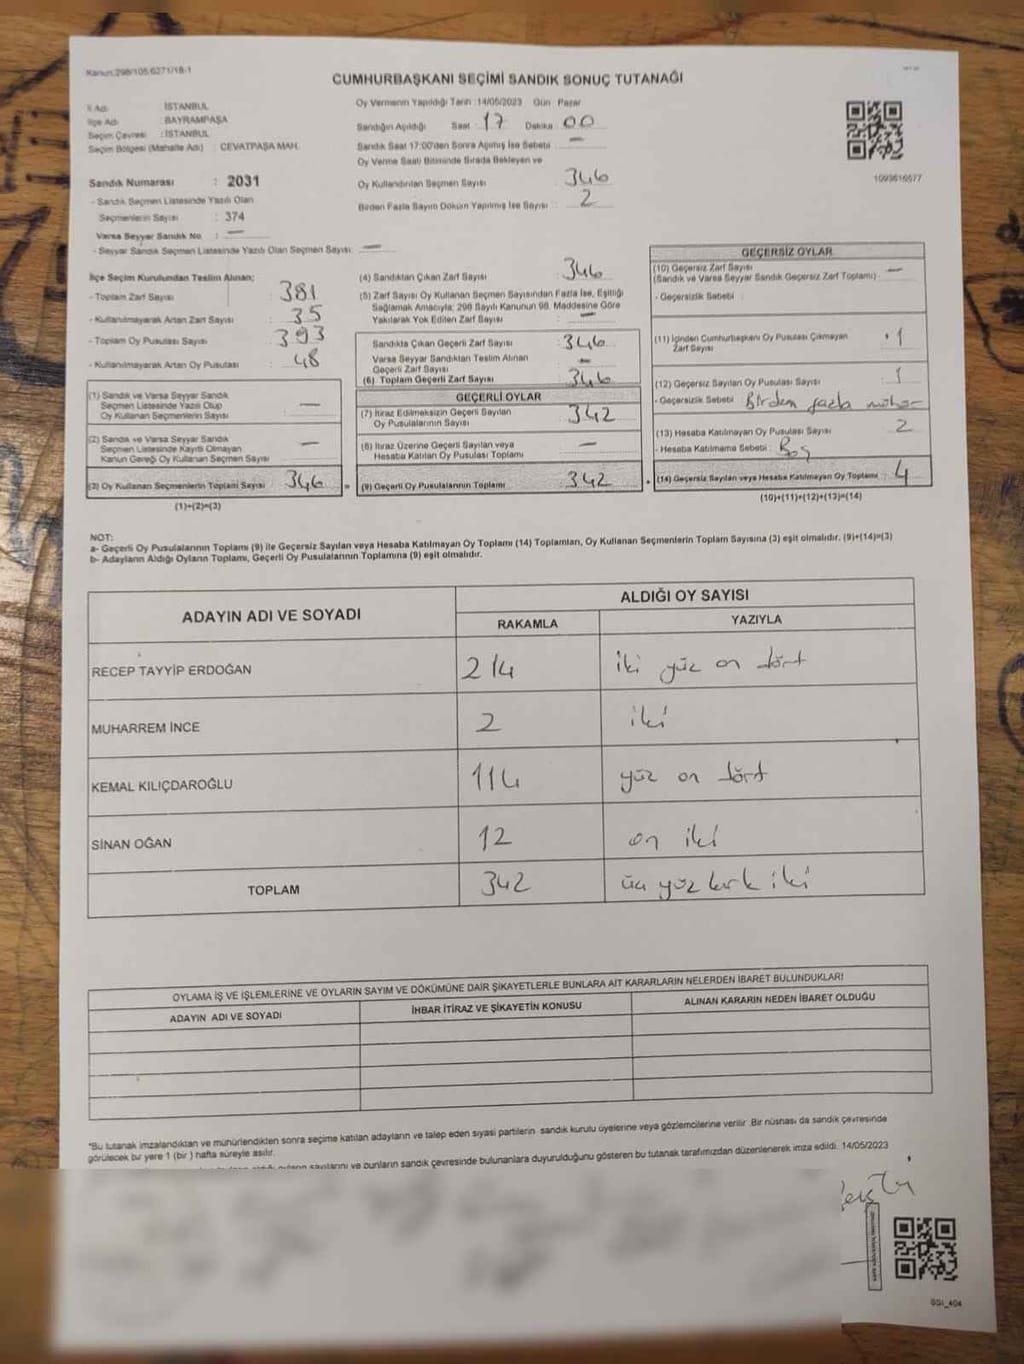 Kanun:298/105,6271/18-1
CUMHURBAŞKANI SEÇİMİ SANDIK SONUÇ TUTANAĞI
İl Adı : İSTANBUL
İlçe Adı : BAYRAMPAŞA
Seçim Çevresi : İSTANBUL
Seçim Bölgesi (Mahalle Adı) : CEVATPAŞA MAH.
Sandık Numarası : 2031
- Sandık Seçmen Listesinde Yazılı Olan
Seçmenlerin Sayısı : 374
Varsa Seyyar Sandık No : —
- Seyyar Sandık Seçmen Listesinde Yazılı Olan Seçmen Sayısı: —
Oy Vermenin Yapıldığı Tarih :14/05/2023 Gün Pazar
Sandığın Açıldığı Saat 17 Dakika 00
Sandık Saat 17:00'den Sonra Açılmış İse Sebebi —
Oy Verme Saati Bitiminde Sırada Bekleyen ve
Oy Kullandırılan Seçmen Sayısı : 346
Birden Fazla Sayım Döküm Yapılmış İse Sayısı : 2
1099616577
İlçe Seçim Kurulundan Teslim Alınan;
- Toplam Zarf Sayısı : 381
- Kullanılmayarak Artan Zarf Sayısı : 35
- Toplam Oy Pusulası Sayısı : 393
- Kullanılmayarak Artan Oy Pusulası : 48
(1) Sandık ve Varsa Seyyar Sandık
Seçmen Listesinde Yazılı Olup
Oy Kullanan Seçmenlerin Sayısı —
(2) Sandık ve Varsa Seyyar Sandık
Seçmen Listesinde Kayıtlı Olmayan
Kanun Gereği Oy Kullanan Seçmen Sayısı —
(3) Oy Kullanan Seçmenlerin Toplam Sayısı 346
(1)+(2)=(3)
(4) Sandıktan Çıkan Zarf Sayısı : 346
(5) Zarf Sayısı Oy Kullanan Seçmen Sayısından Fazla İse, Eşitliği
Sağlamak Amacıyla; 298 Sayılı Kanunun 98. Maddesine Göre
Yakılarak Yok Edilen Zarf Sayısı : —
Sandıkta Çıkan Geçerli Zarf Sayısı : 346
Varsa Seyyar Sandıktan Teslim Alınan
Geçerli Zarf Sayısı : —
(6) Toplam Geçerli Zarf Sayısı : 346
GEÇERLİ OYLAR
(7) İtiraz Edilmeksizin Geçerli Sayılan
Oy Pusulalarının Sayısı : 342
(8) İtiraz Üzerine Geçerli Sayılan veya
Hesaba Katılan Oy Pusulası Toplamı : —
= (9) Geçerli Oy Pusulalarının Toplamı : 342
GEÇERSİZ OYLAR
(10) Geçersiz Zarf Sayısı
(Sandık ve Varsa Seyyar Sandık Geçersiz Zarf Toplamı) : —
- Geçersizlik Sebebi :
(11) İçinden Cumhurbaşkanı Oy Pusulası Çıkmayan
Zarf Sayısı : 1
(12) Geçersiz Sayılan Oy Pusulası Sayısı : 1
- Geçersizlik Sebebi : Birden fazla mühür
(13) Hesaba Katılmayan Oy Pusulası Sayısı : 2
- Hesaba Katılmama Sebebi : Boş
+ (14) Geçersiz Sayılan veya Hesaba Katılmayan Oy Toplamı : 4
(10)+(11)+(12)+(13)=(14)
NOT:
a- Geçerli Oy Pusulalarının Toplamı (9) ile Geçersiz Sayılan veya Hesaba Katılmayan Oy Toplamı (14) Toplamları, Oy Kullanan Seçmenlerin Toplam Sayısına (3) eşit olmalıdır. (9)+(14)=(3)
b- Adayların Aldığı Oyların Toplamı, Geçerli Oy Pusulalarının Toplamına (9) eşit olmalıdır.
ADAYIN ADI VE SOYADI
ALDIĞI OY SAYISI
RAKAMLA YAZIYLA
RECEP TAYYİP ERDOĞAN 214 iki yüz on dört
MUHARREM İNCE 2 iki
KEMAL KILIÇDAROĞLU 114 yüz on dört
SİNAN OĞAN 12 on iki
TOPLAM 342 üç yüz kırk iki
OYLAMA İŞ VE İŞLEMLERİNE VE OYLARIN SAYIM VE DÖKÜMÜNE DAİR ŞİKAYETLERLE BUNLARA AİT KARARLARIN NELERDEN İBARET BULUNDUKLARI
ADAYIN ADI VE SOYADI İHBAR İTİRAZ VE ŞİKAYETİN KONUSU ALINAN KARARIN NEDEN İBARET OLDUĞU
*Bu tutanak imzalandıktan ve mühürlendikten sonra seçime katılan adayların ve talep eden siyasi partilerin sandık kurulu üyelerine veya gözlemcilerine verilir. Bir nüshası da sandık çevresinde
görülecek bir yere 1 (bir) hafta süreyle asılır.
sayılarını ve bunların sandık çevresinde bulunanlara duyurulduğunu gösteren bu tutanak tarafımızdan düzenlenerek imza edildi. 14/05/2023